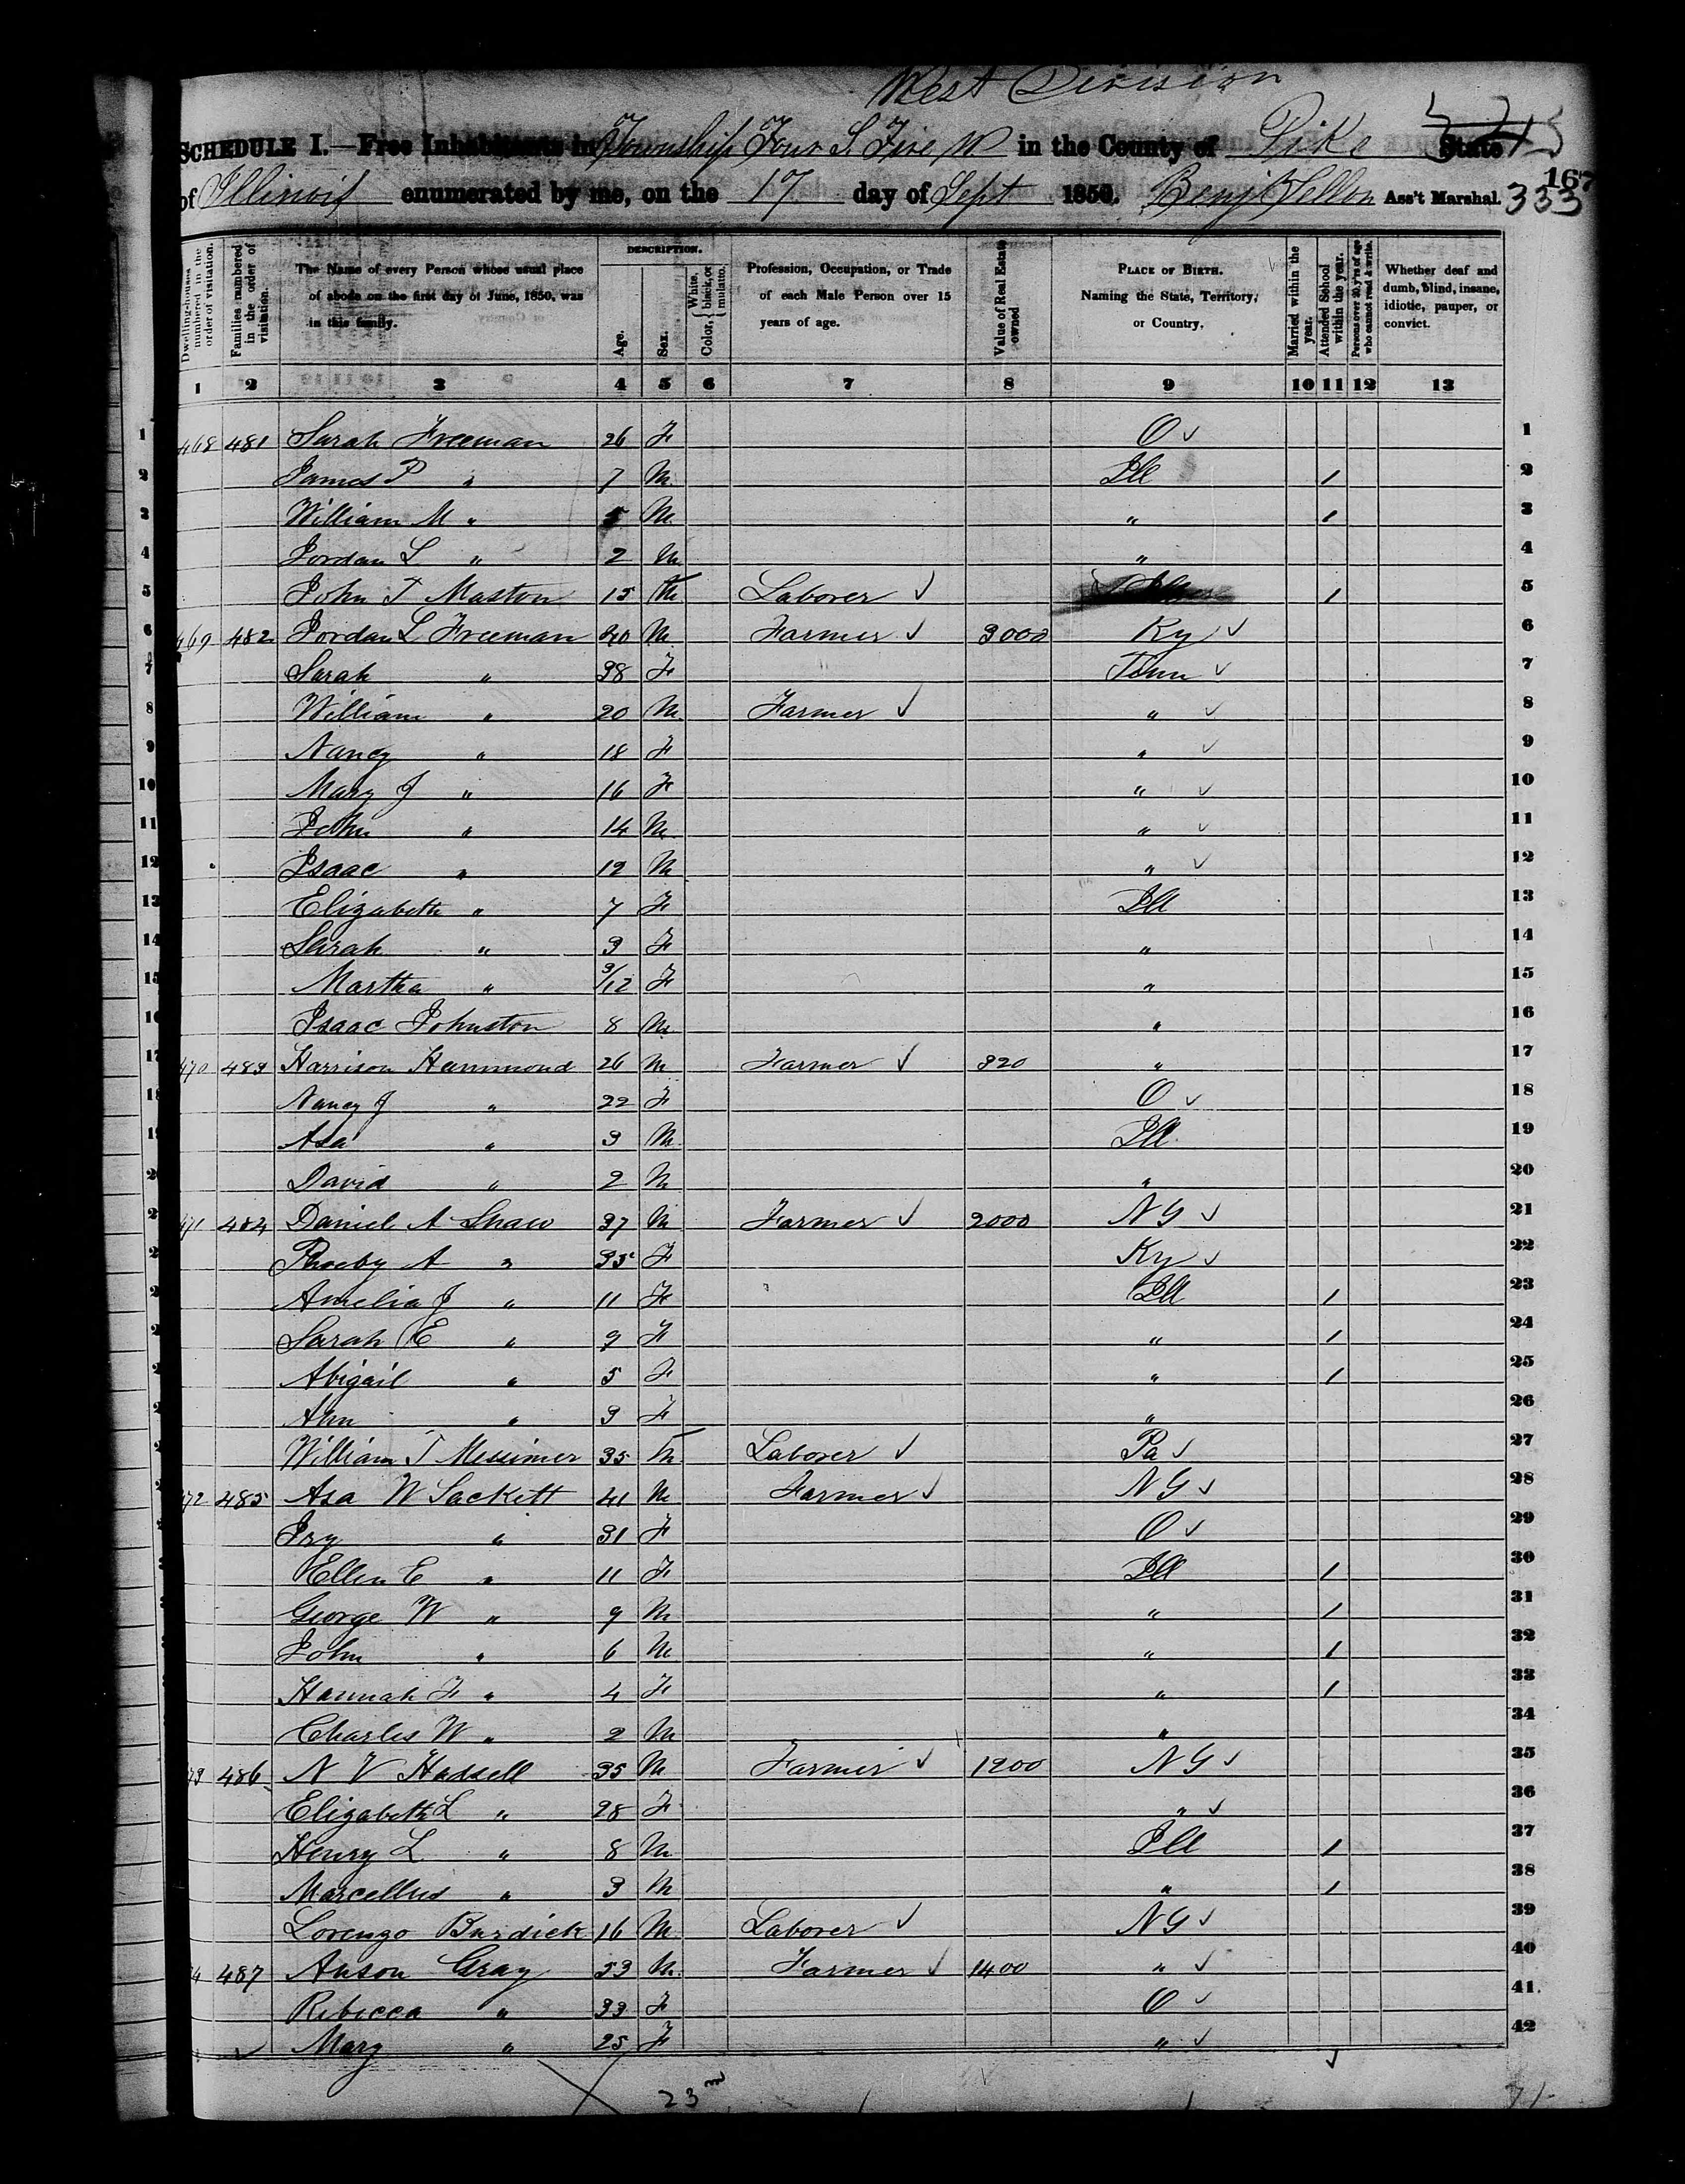 West Division
SCHEDULE I.—Free Inhabitants in Township Four S. Five W. in the County of Pike State
of Illinois enumerated by me, on the 17 day of Sept 1850. Ass't Marshal. 333
167
Dwelling-houses numbered in the order of visitation.
Families numbered in the order of visitation.
The Name of every Person whose usual place of abode on the first day of June, 1850, was in this family.
DESCRIPTION.
Age.
Sex.
Color, White, black, or mulatto.
Profession, Occupation, or Trade of each Male Person over 15 years of age.
Value of Real Estate owned
PLACE OF BIRTH. Naming the State, Territory, or Country.
Married within the year.
Attended School within the year.
Persons over 20 y'rs of age who cannot read & write.
Whether deaf and dumb, blind, insane, idiotic, pauper, or convict.
1 2 3 4 5 6 7 8 9 10 11 12 13
1 468 481 Sarah Freeman 26 F O ✓ 1
2 James P " 7 M Ill 1 2
3 William M " 5 M " 1 3
4 Jordan L " 2 M " 4
5 John T Maston 15 M Laborer ✓ 1 5
6 469 482 Jordan L Freeman 40 M Farmer ✓ 3000 Ky ✓ 6
7 Sarah " 38 F Tenn ✓ 7
8 William " 20 M Farmer ✓ " ✓ 8
9 Nancy " 18 F " ✓ 9
10 Mary J " 16 F " ✓ 10
11 John " 14 M " ✓ 11
12 Isaac " 12 M " ✓ 12
13 Elizabeth " 7 F Ill 13
14 Sarah " 3 F " 14
15 Martha " 3/12 F " 15
Isaac Johnston 8 M " 16
470 483 Harrison Hammond 26 M Farmer ✓ 320 " 17
Nancy J " 22 F O ✓ 18
Asa " 3 M Ill 19
David " 2 M " 20
471 484 Daniel A Shaw 37 M Farmer ✓ 2000 NY ✓ 21
Phoeby A " 35 F Ky ✓ 22
Amelia J " 11 F Ill 1 23
Sarah E " 9 F " 1 24
Abigail " 5 F " 1 25
Ann " 3 F " 26
William T Messimer 35 M Laborer ✓ Pa ✓ 27
472 485 Asa W Sackett 41 M Farmer ✓ NY ✓ 28
Iry " 31 F O ✓ 29
Ellen E " 11 F Ill 1 30
George W " 9 M " 1 31
John " 6 M " 1 32
Hannah F " 4 F " 1 33
Charles W " 2 M " 34
73 486 N V Hadsell 35 M Farmer ✓ 1200 NY ✓ 35
Elizabeth L " 28 F " ✓ 36
Henry L " 8 M Ill 1 37
Marcellus " 3 M " 1 38
Lorenzo Burdick 16 M Laborer ✓ NY ✓ 39
4 487 Anson Gray 53 M Farmer ✓ 1400 " ✓ 40
Rebecca " 33 F O ✓ 41
Mary " 25 F " ✓ 42
23 m